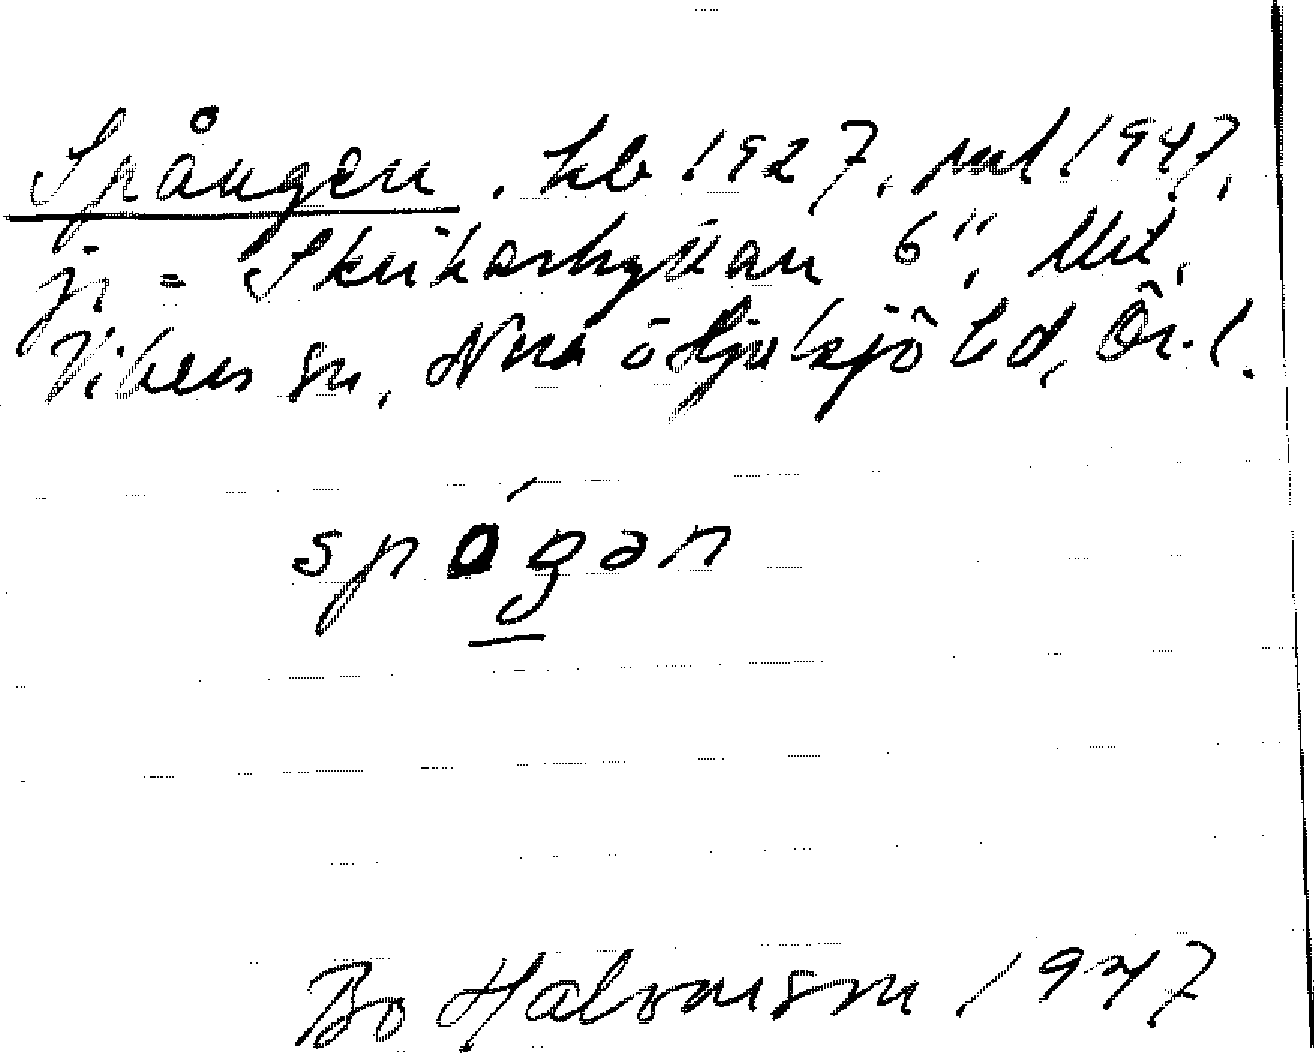 Spången. Lb 1927, uul 1947,
ji = Skrikarhyttan 6", Utt.
Vikers sn. Nora o Hjulsjö bd, Ör. l.
spågən
Bo Halvarson 1947